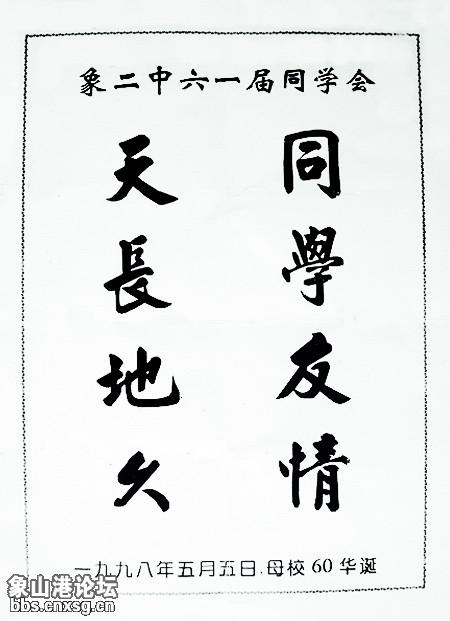 象二中六一届同学会
同學友情
天長地久
一九九八年五月五日.母校60华诞
象山港论坛
bbs.cnxsg.cn